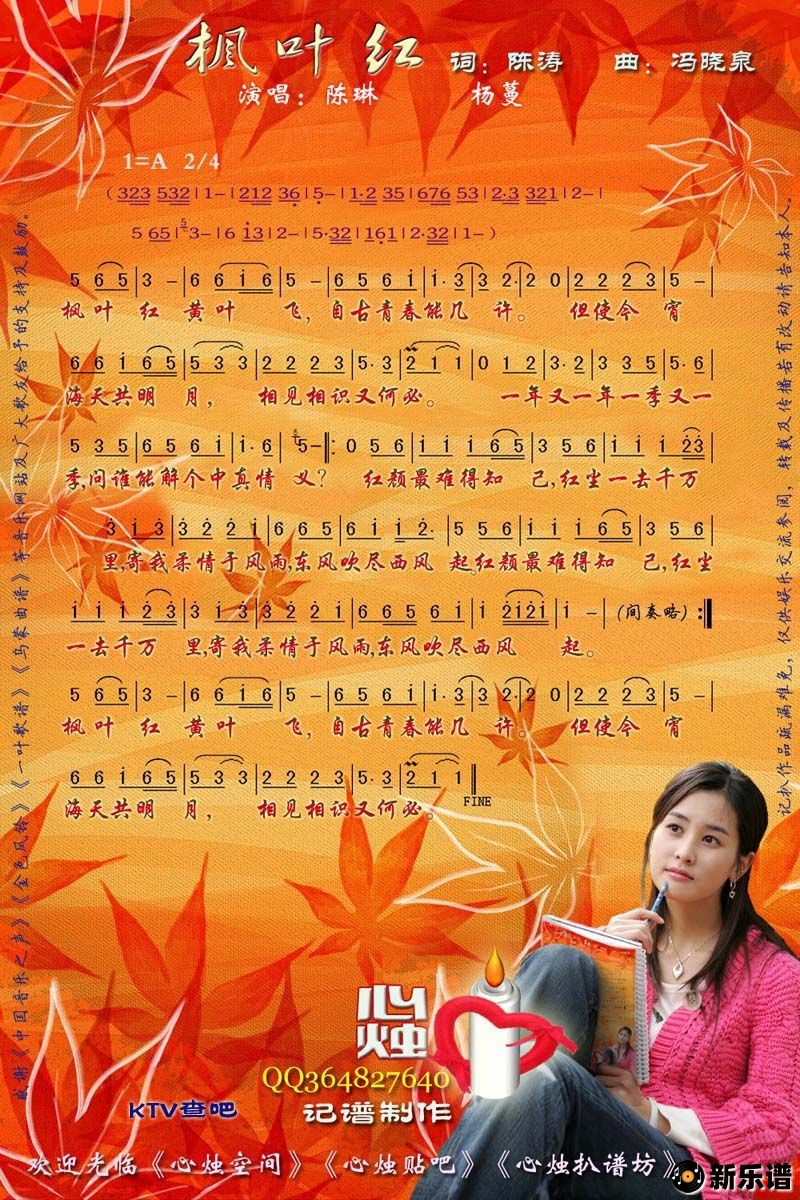 枫叶红 词：陈涛 曲：冯晓泉
演唱：陈琳 杨蔓
1=A 2/4
(323 532|1-|212 36|5-|1·2 35|676 53|2·3 321|2-|
5 65|3-|6 i3|2-|5·32|161|2·32|1-)
5 65|3 -|6 6 i 6|5 -|6 5 6 i|i·3|3 2·|2 0|2 2 2 3|5 -|
枫叶 红 黄叶 飞，自古青春能几 许。 但使今 宵
6 6 i 65|5 3 3|2 2 2 3|5·3|2 1 1|0 1 2|3·2|3 3 2 3|5·6|
海天共明 月， 相见相识又何必。 一年又一年一季又一
5 3 5|6 5 6 i|i·6|5-‖:0 5 6|i i i 6 5|3 5 6|i i i 2 3|
季,问谁能解个中真情 义？ 红颜最难得知 己,红尘一去千万
3 i 3|3 2 2 i|6 6 5 6|i i 2·|5 5 6|i i i 6 5|3 5 6|
里,寄我柔情于风雨,东风吹尽西风 起。红颜最难得知 己,红尘
i i i 2 3|3 i 3|3 2 2 i|6 6 5 6|i 2 i 2 i|i -|(间奏略):‖
一去千万 里,寄我柔情于风雨,东风吹尽西风 起。
5 65|3 -|6 6 i 6|5 -|6 5 6 i|i·3|3 2·|2 0|2 2 2 3|5 -|
枫叶 红 黄叶 飞，自古青春能几 许。 但使今 宵
6 6 i 65|5 3 3|2 2 2 3|5·3|2 1 1‖
FINE
海天共明 月， 相见相识又何必。
感谢《中国音乐之声》《金色风铃》《一叶歌谱》《乌蒙曲谱》等音乐网站及广大歌友给予的支持及鼓励。
记扒作品疏漏难免，仅供娱乐交流参阅，转载及传播若有改动请告知本人。
心烛
QQ364827640
KTV查吧 记谱制作
欢迎光临《心烛空间》《心烛贴吧》《心烛扒谱坊》
新乐谱